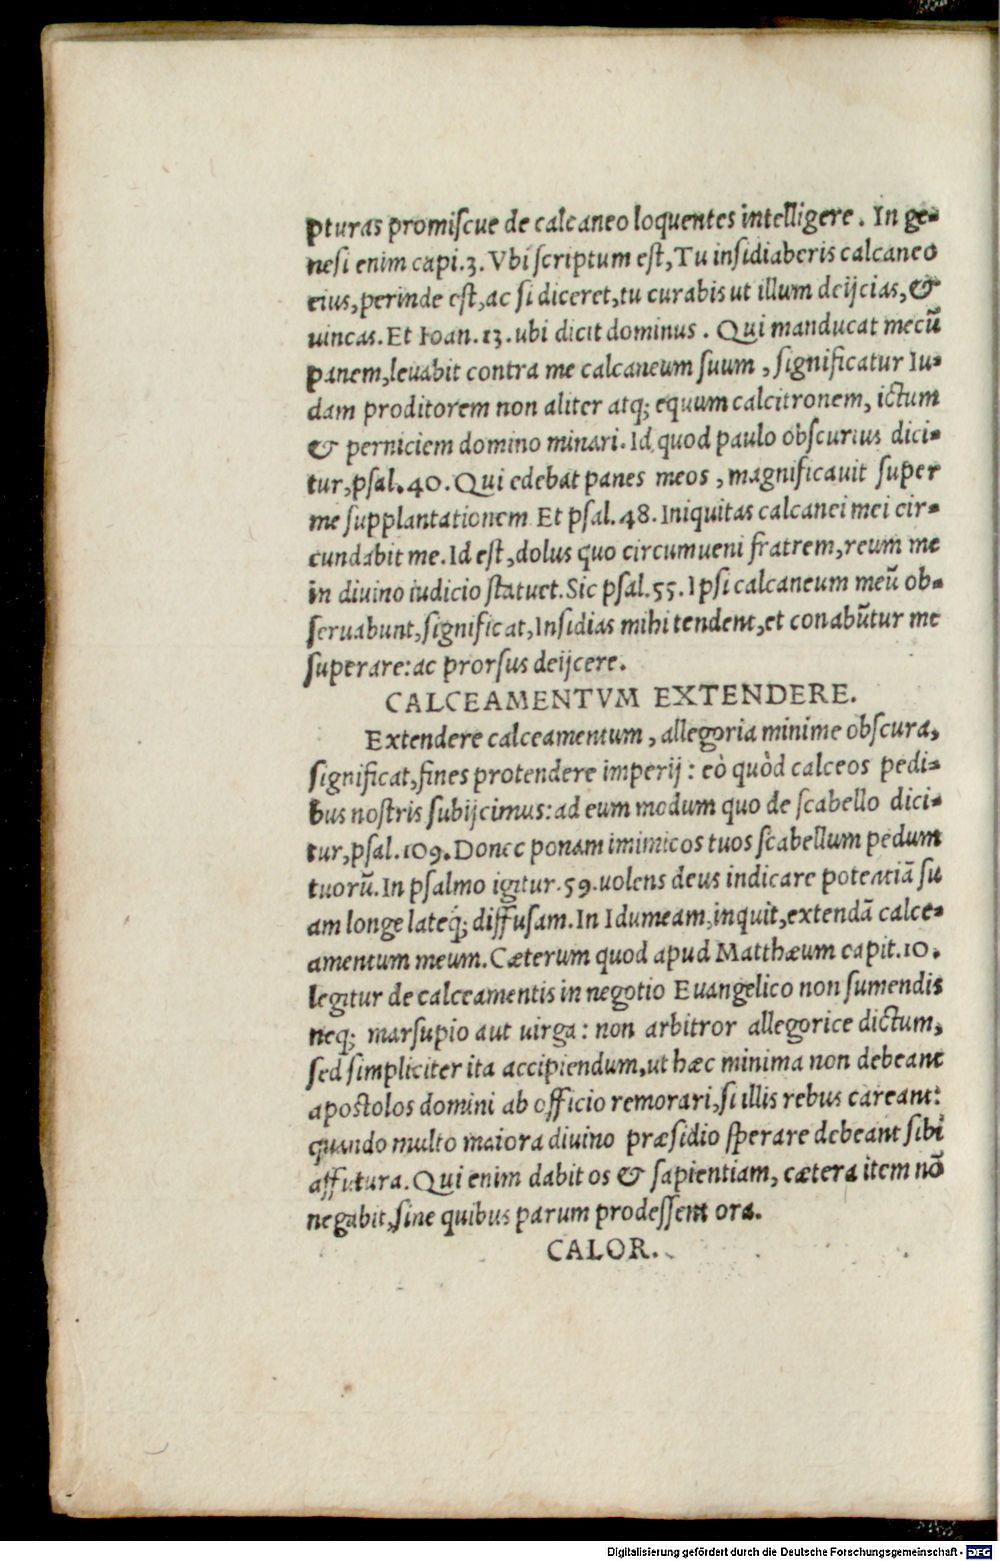 pturas promiſcue de calcaneo loquentes intelligere. In ge-
neſi enim capi.3. Vbi ſcriptum eſt, Tu inſidiaberis calcaneo
eius, perinde eſt, ac ſi diceret, tu curabis ut illum deijcias, &
uincas. Et Ioan. 13. ubi dicit dominus. Qui manducat mecū
panem, leuabit contra me calcaneum ſuum, ſignificatur Iu-
dam proditorem non aliter atq; equum calcitronem, ictum
& perniciem domino minari. Id quod paulo obſcurius dici-
tur, pſal. 40. Qui edebat panes meos, magnificauit ſuper
me ſupplantationem Et pſal. 48. Iniquitas calcanei mei cir-
cundabit me. Id eſt, dolus quo circumueni fratrem, reum me
in diuino iudicio ſtatuet. Sic pſal. 55. Ipſi calcaneum meū ob-
ſeruabunt, ſignificat, Inſidias mihi tendent, et conabūtur me
ſuperare: ac prorſus deijcere.
CALCEAMENTVM EXTENDERE.
Extendere calceamentum, allegoria minime obſcura,
ſignificat, fines protendere imperij: eò quòd calceos pedi-
bus noſtris ſubijcimus: ad eum modum quo de ſcabello dici-
tur, pſal. 109. Donec ponam inimicos tuos ſcabellum pedum
tuorū. In pſalmo igitur. 59. uolens deus indicare potentiā ſu
am longe lateq́; diffuſam. In Idumeam, inquit, extendā calce-
amentum meum. Cæterum quod apud Matthæum capit. 10.
legitur de calceamentis in negotio Euangelico non ſumendis
neq; marſupio aut uirga: non arbitror allegorice dictum,
ſed ſimpliciter ita accipiendum, ut hæc minima non debeant
apoſtolos domini ab officio remorari, ſi illis rebus careant:
quando multo maiora diuino præſidio ſperare debeant ſibi
affutura. Qui enim dabit os & ſapientiam, cætera item nō
negabit, ſine quibus parum prodeſſent ora.
CALOR.
Digitalisierung gefördert durch die Deutsche Forschungsgemeinschaft - DFG